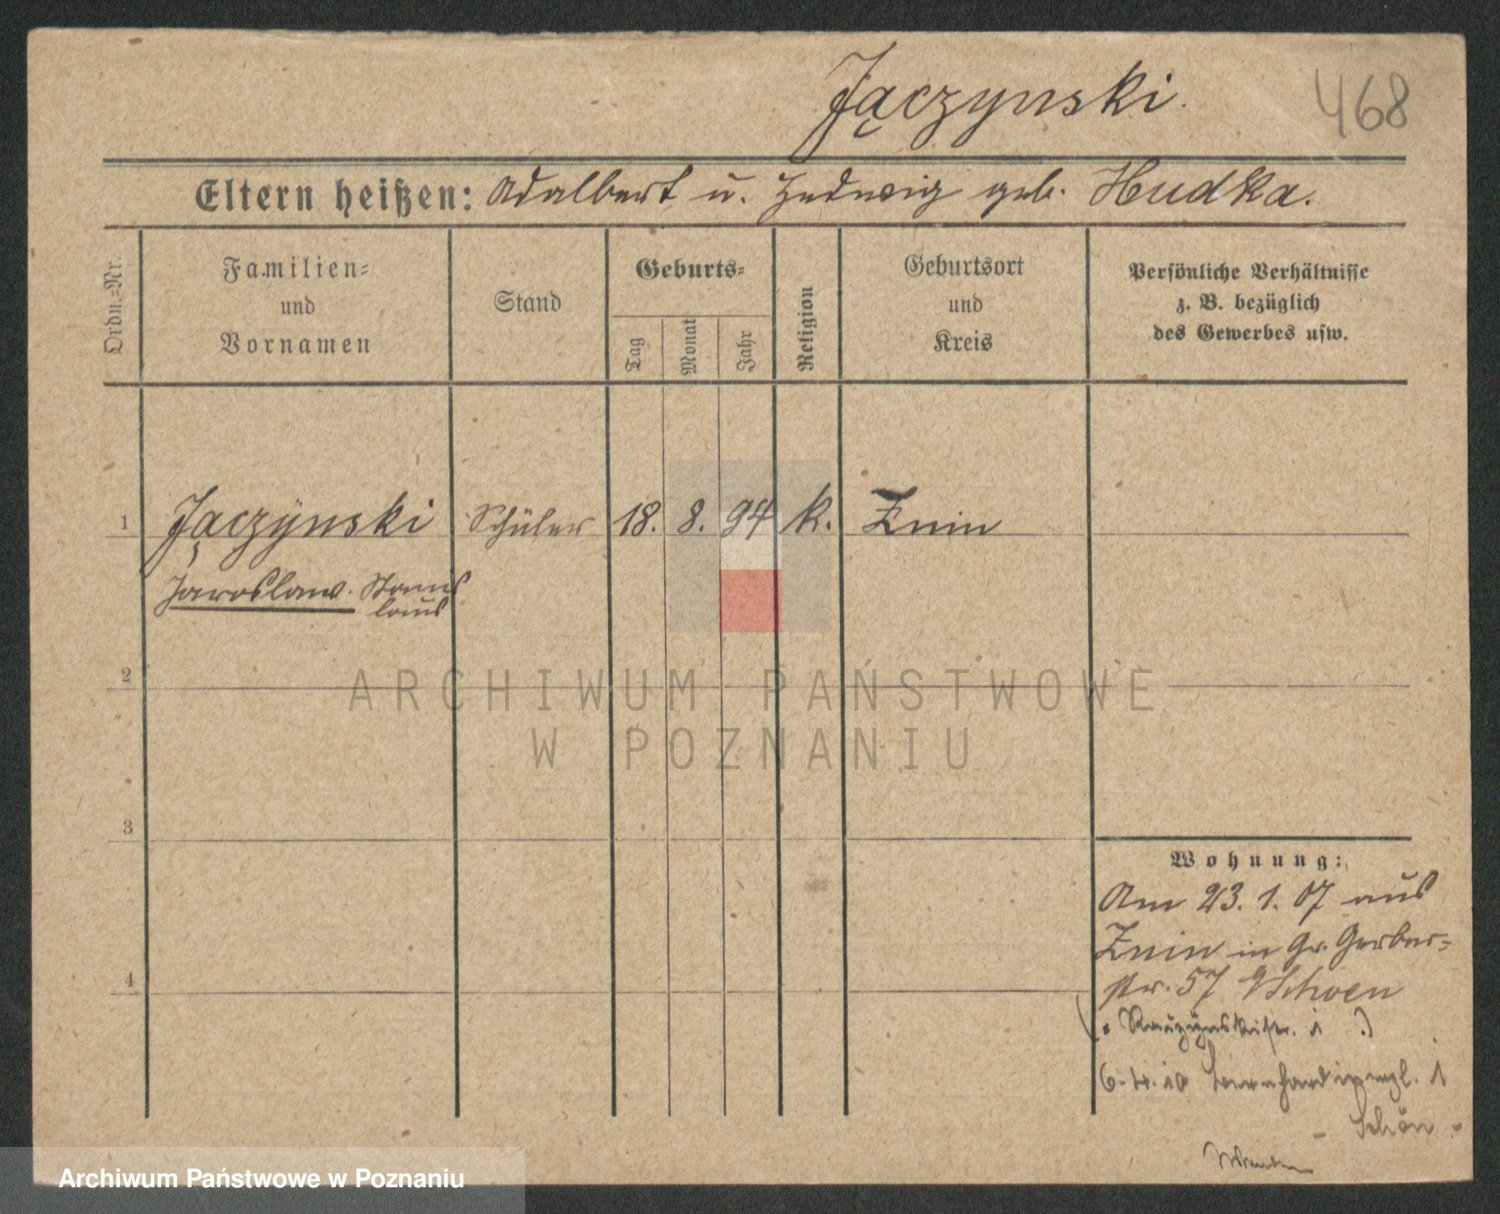 Jączynski.
468
Eltern heißen: Adalbert u. Hedwig geb. Hudka.
Ordn.-Nr.
Familien-
und
Vornamen
Stand
Geburts-
Tag
Monat
Jahr
Religion
Geburtsort
und
Kreis
Persönliche Verhältnisse
z. B. bezüglich
des Gewerbes usw.
1 Jączynski Schüler 18. 8. 94 k. Znin
Jaroslaw Stanis
laus
2
ARCHIWUM PAŃSTWOWE
W POZNANIU
3
Wohnung:
Am 23. 1. 07 aus
Znin in Gr. Gerber-
4
str. 57 Schoen
1
6. 4. 10 Bernhardinerpl. 1
Schön
Archiwum Państwowe w Poznaniu